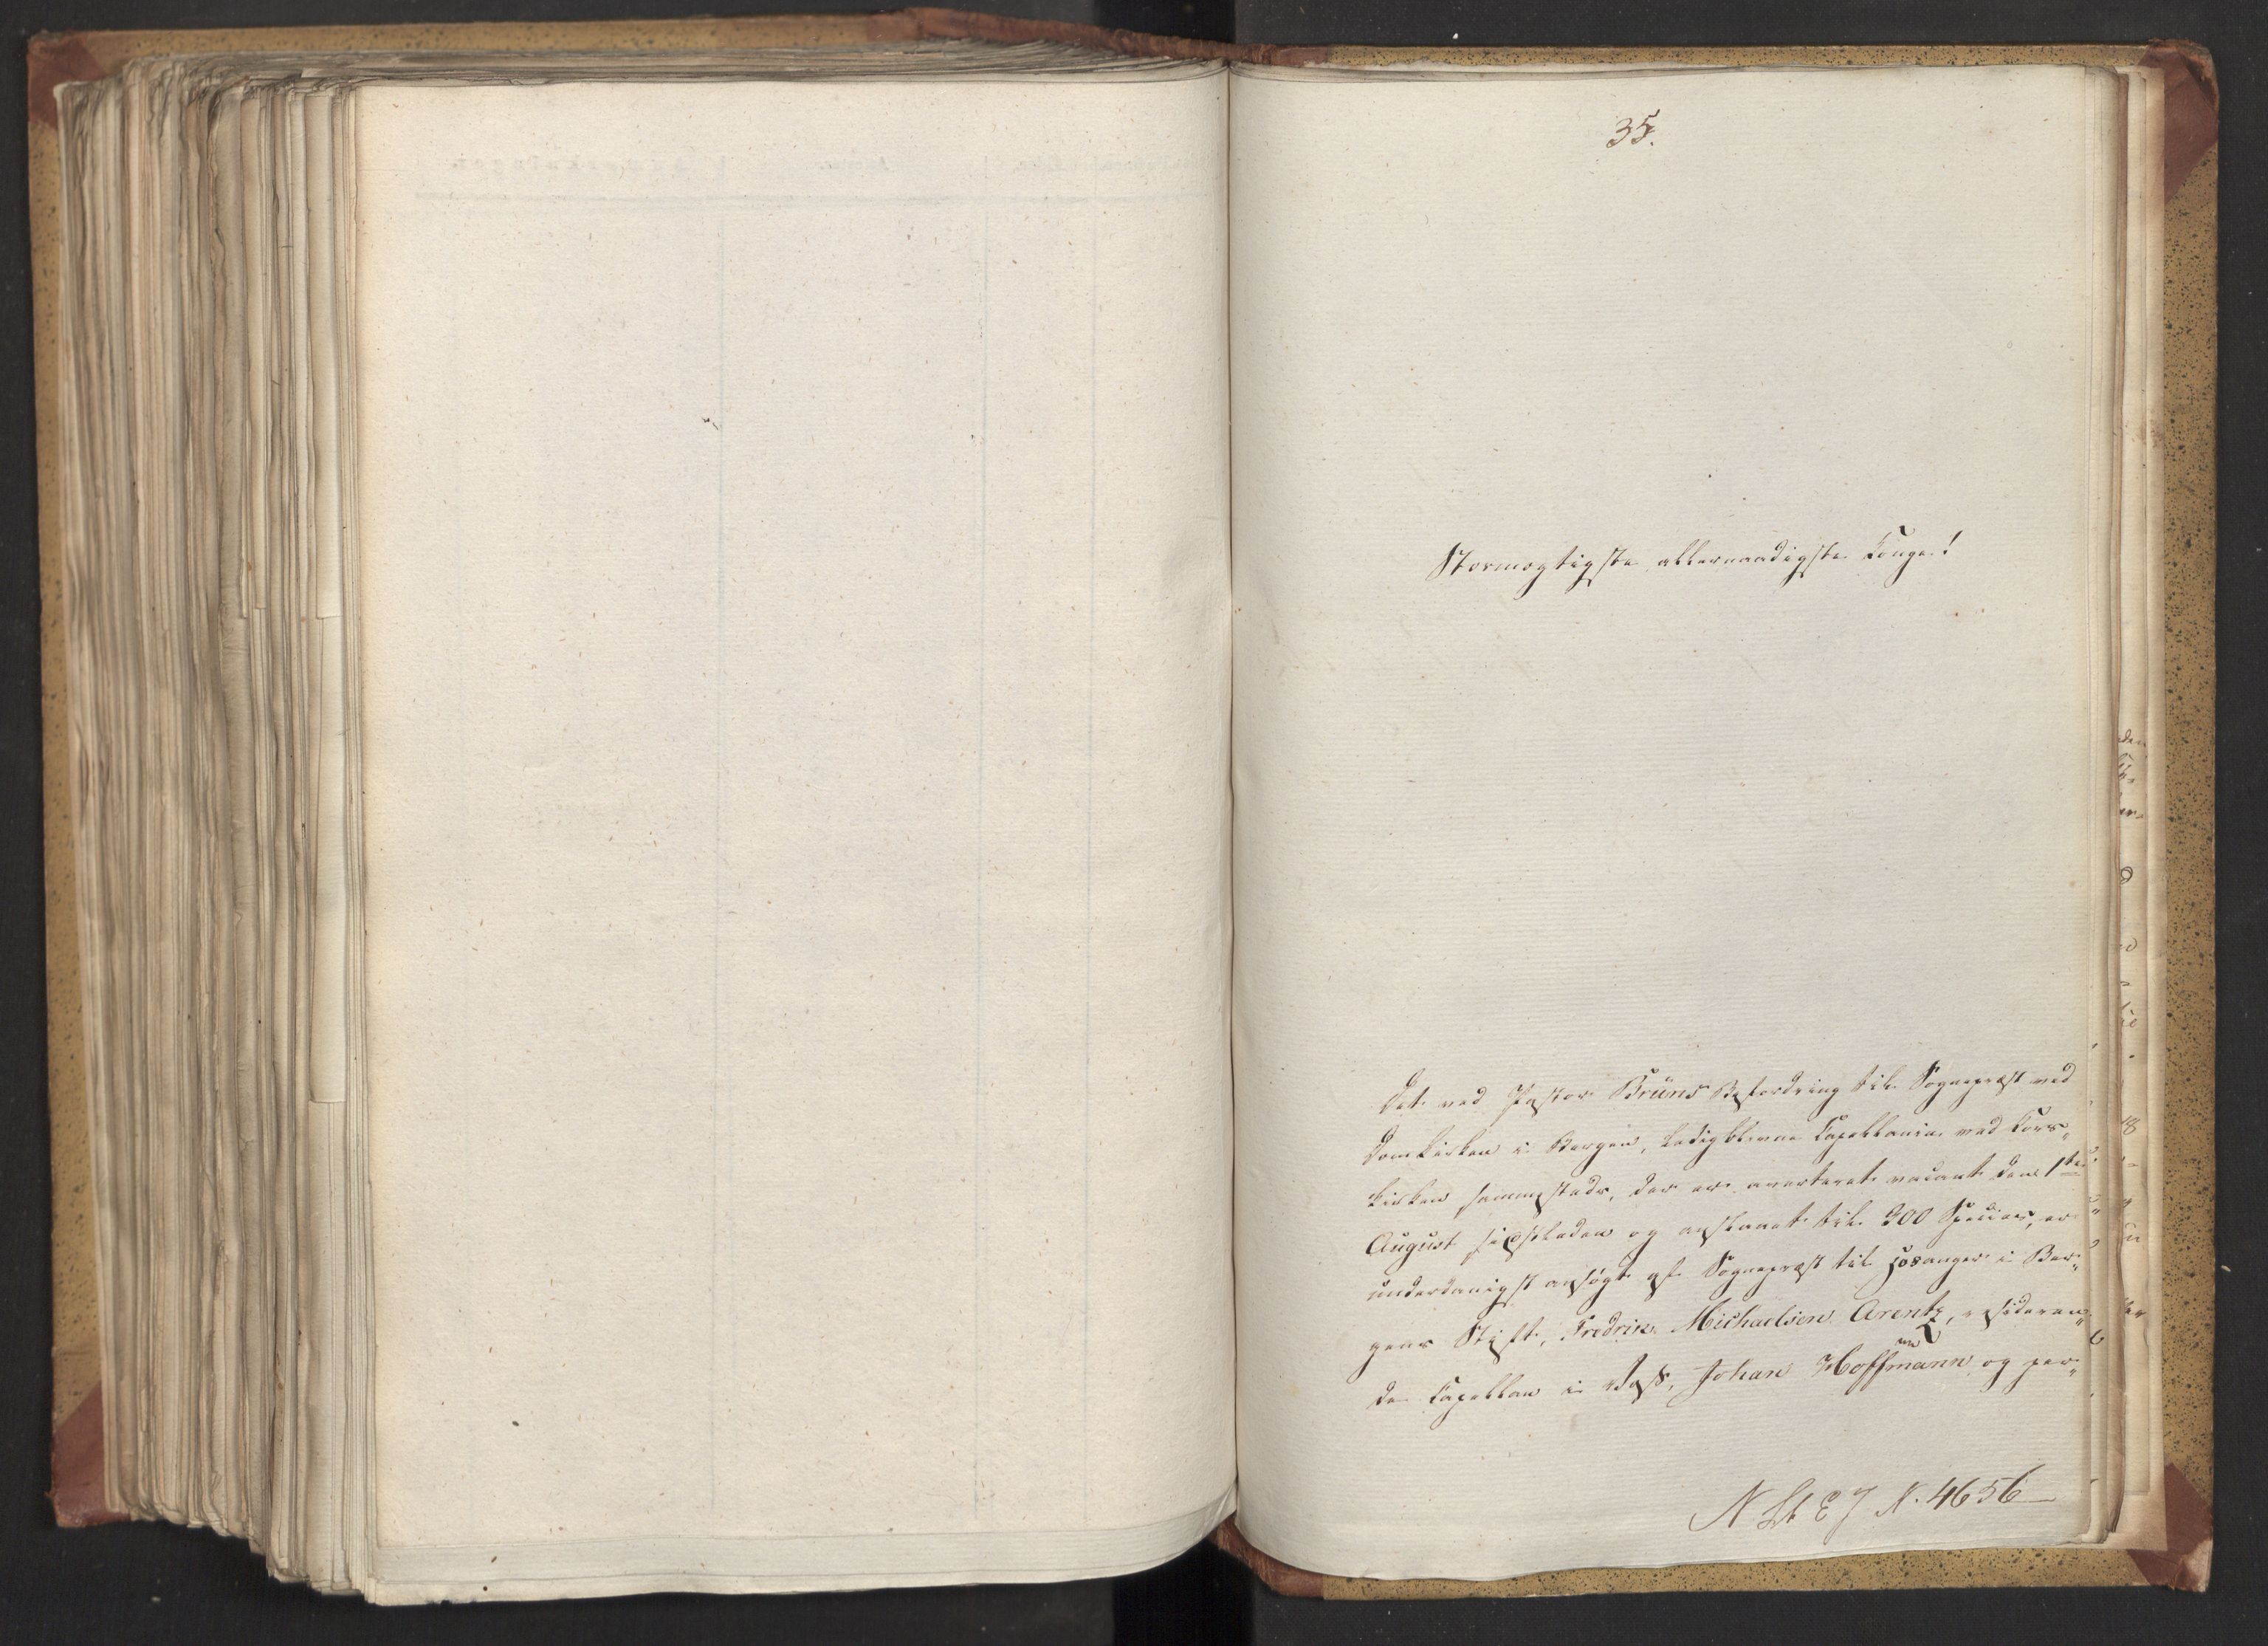 35.
Stormægtigste, allernaadigste Konge!
Det ved Pastor Brüns Befordring til Sognepræst ved
Domkirken i Bergen, ledigblevne Capellanie ved Kors„
kirken sammesteds, der er averteret vacant den 1ste
August sidstleden og anslaaet til 900 Specier, er
underdanigst ansøgt af Sognepræst til Hosanger i Ber„
gens Stift, Fredrik Michaelsen Arentz, resideren„
de Capellan i Voss, Johan Hoffmann og per„
N St E J N. 4656